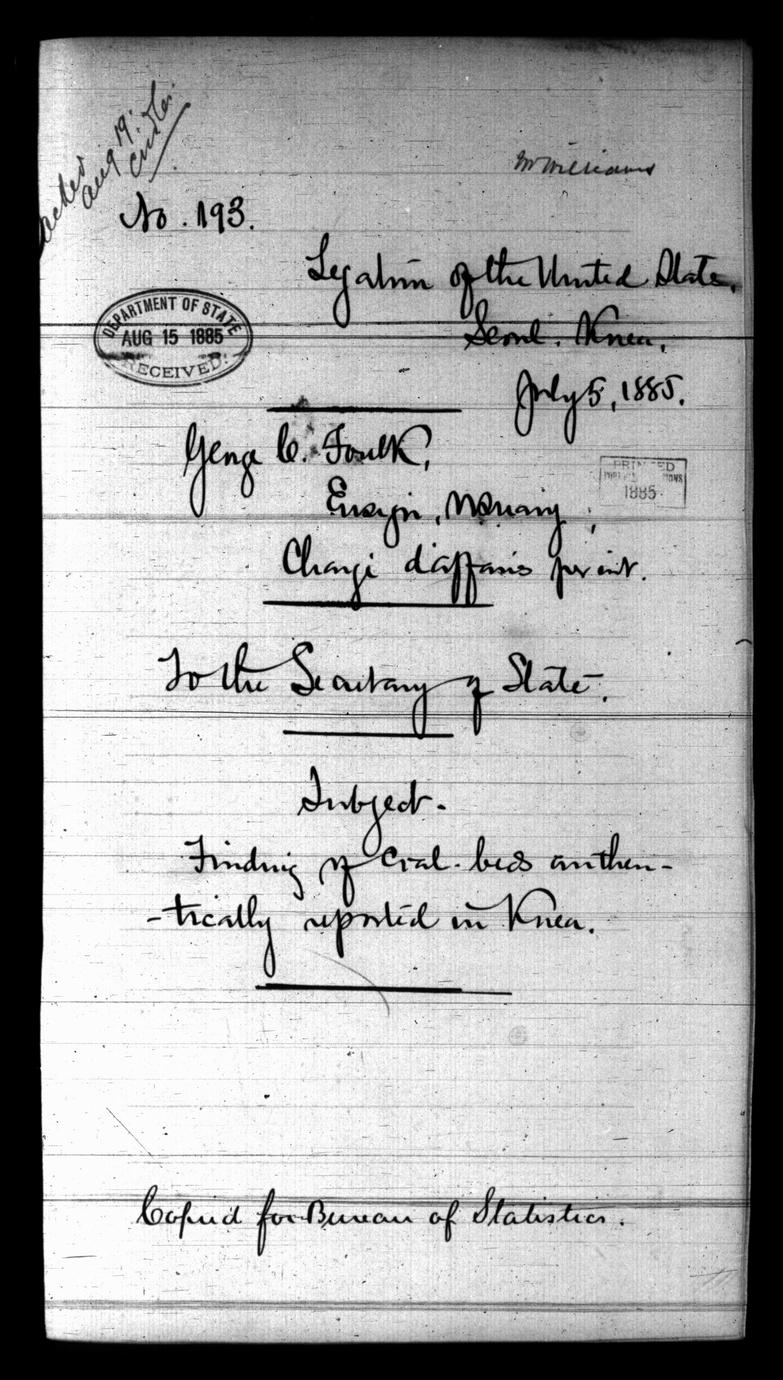 acked
Aug 19.
Mr Williams
No. 193.
Legation of the United States,
Seoul. Korea,
July 5, 1885.
DEPARTMENT OF STATE
AUG 15 1885
RECEIVED.
George C. Foulk,
Ensign, U.S. Navy,
Chargé d'affaires per int.
PRINTED
1885
To the Secretary of State.
Subject.
Finding of coal-beds authen-
-tically reported in Korea.
Copied for Bureau of Statistics.